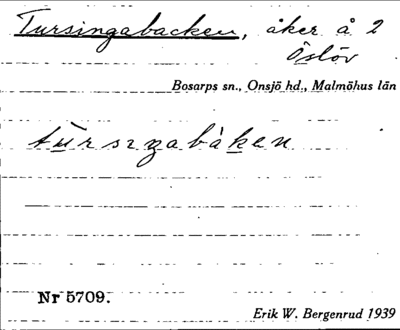 Tursingabacken, åker å 2
Öslöv
Bosarps sn., Onsjö hd., Malmöhus län
Nr 5709.
Erik W. Bergenrud 1939